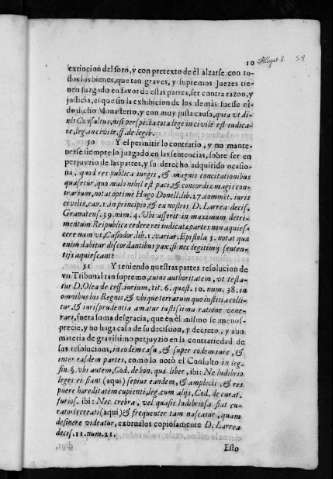 10
extincion del foro, y con pretexto de èl alzarse con to-
dos los bienes, que tan graves, y supremos Juezes tienen
juzgado en favor de estas partes, ser contra razon, y
justicia, el que sin la exhibicion de los demàs fuesse
dicho Monasterio, y con muy justa causa, quia ut di-
xit Consultus, nisi perspecta tota lege incivile est iudica-
re, leg. incivile, ff. de legib.
30 Y el permitir lo contrario, y no mante-
nerse siempre lo juzgado en las sentencias, sobre ser en
perjuyzio de las partes, y su derecho adquirido ocasio-
na, quod res publica turget, & magnis concitationibus
quatetur, quo malo nihil est pace, & concordia magis con-
trarium, notat optime Hugo Donell. lib. 27. comment. iuris
civilis, cap. 1. in principio, & ex nostris D. Larrea decis.
Granatens. 39. num. 4. Ubi asserit in maximum detri-
mentum Reipublicæ cedere res iudicatas
rere num ut, Casiodor. lib. 1. variar. Epistola 5. not at que
enim dabitur discordantibus pax, si nec legitimis senten-
tijs aquiescant
31 Y teniendo nuestras partes resolucion de
un Tribunal tan supremo, cuius authoritatem, ut testa-
tur D. Olea de cess. iurium, tit. 6. quæst. 10. num. 38. in
omnibus bis Regnis & ubique terrarum quo iustitia coli-
tur, & iurisprudentia amatur iustissima ratione vene-
rare, fuera suma desgracia, que en el mismo se
precio, y no haga caso de su decision, y decreto, y aun
materia de gravissimo perjuyzio en la contrariedad de
las resoluciones, in eadem causa, & super eodem iure, &
inter easdem partes, como lo notò el Consulto in leg.
fin. §. ubi autem, Cod. de bon. quæ liber, ibi: Ne ludibria
leges ei fiant (aqui) sepius eandem, & amplecti, & res-
puere hæreditatem cupienti, leg. cum aliqui, Cod. de curat.
furios. ibi: Nec crebra, vel quasi ludibriosa fiat cu-
ratoris creatio (aqui) & frequenter tam nascatur, quam
desinere videatur, exornòlos copiosamente D. Larrea
decis. 11. num. 21.
Esto